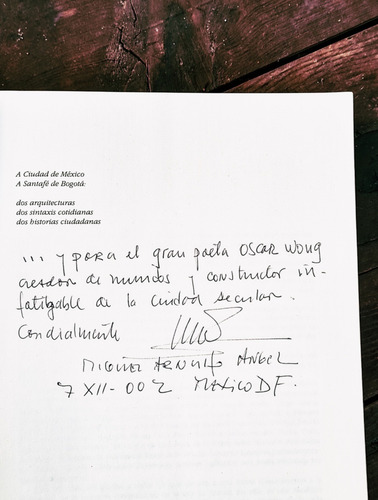 A Ciudad de México
A Santafé de Bogotá:
dos arquitecturas
dos sintaxis cotidianas
dos historias ciudadanas
... y para el gran poeta OSCAR Wong
creador de mundos y constructor in-
fatigable de la ciudad secular.
Cordialmente
MIGUEL ARNULFO ANGEL
7 XII-002 MEXICO D F.